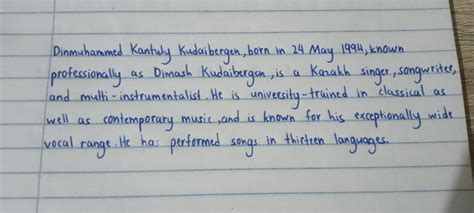 Dinmuhammed Kantuly Kudaibergen, born in 24 May 1994, known
professionally as Dimash Kudaibergen, is a Kazakh singer, songwriter,
and multi-instrumentalist. He is university-trained in classical as
well as contemporary music, and is known for his exceptionally wide
vocal range. He has performed songs in thirteen languages.